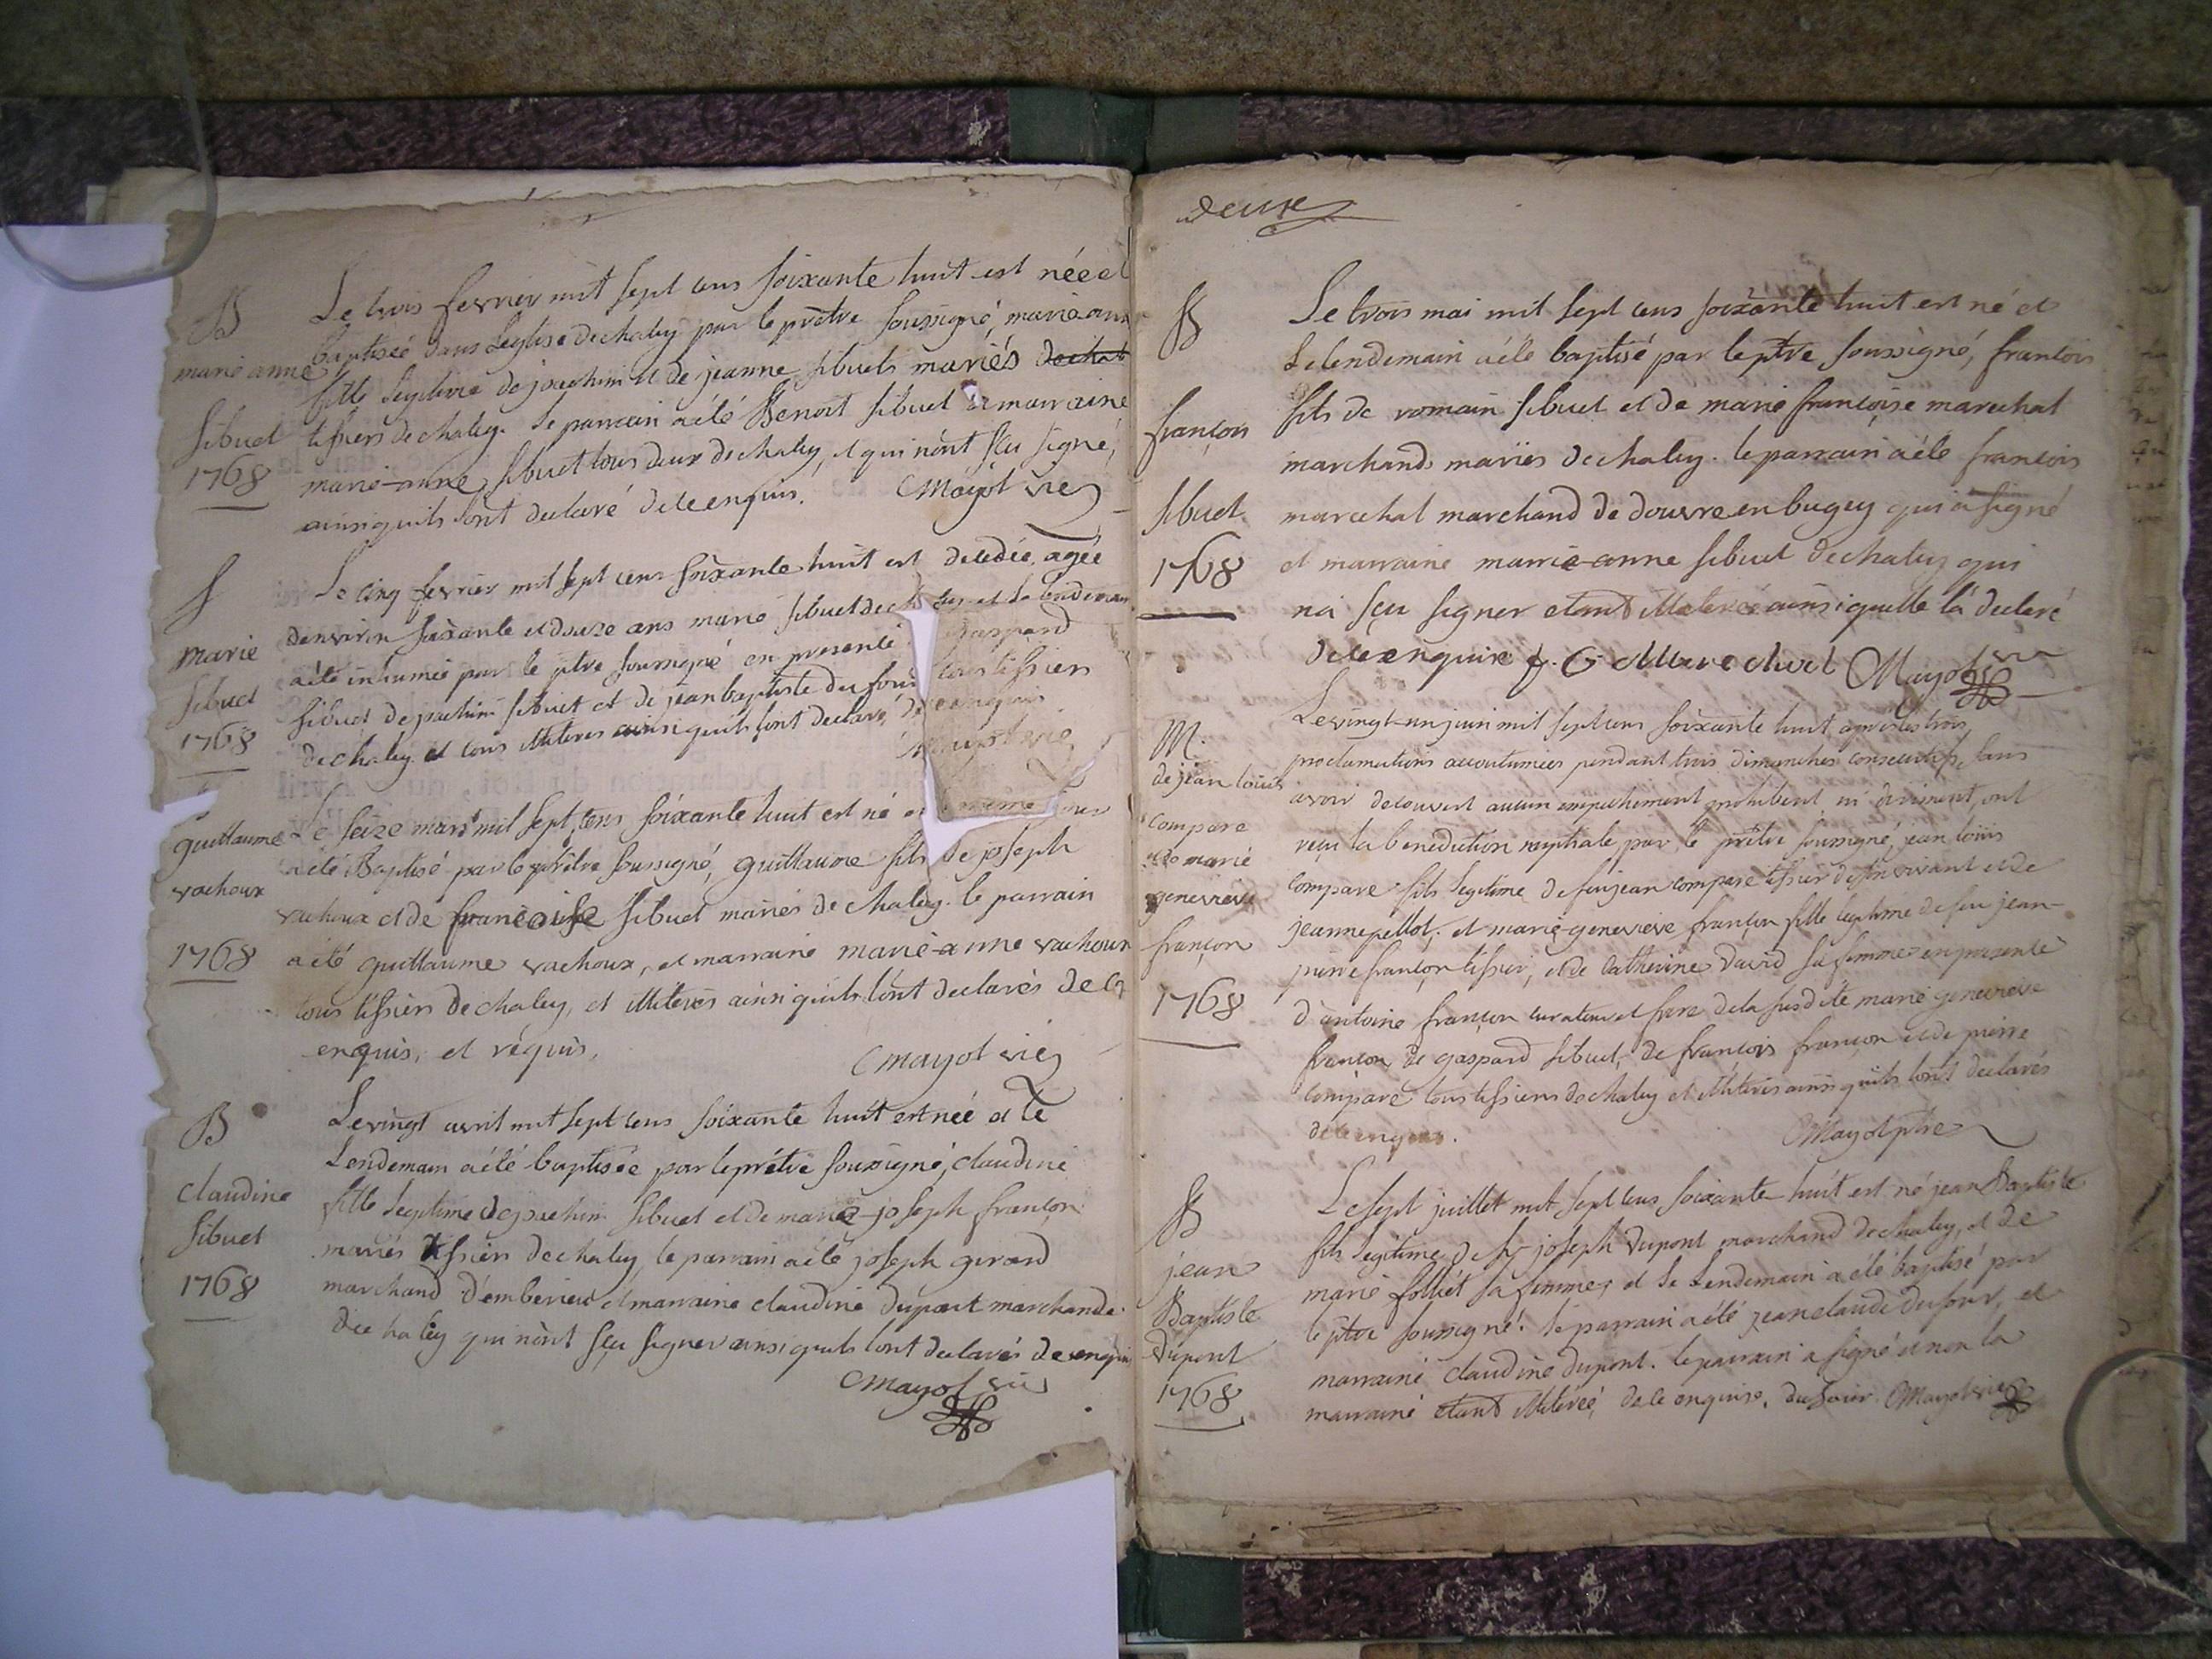 B
marie anne
sibuet
1768
Le trois fevrier mil sept cens soixante huit est née et
baptisée dans Leglise de chaley par le prêtre soussigné, marie-anne
fille legitime de joachim et de jeanne sibuets mariés de chal
tissiers de chaley. le parrain a été Benoit sibuet et marraine
marie-anne sibuet tous deux de chaley, et qui n'ont sçu signé,
ainsi quils l'ont declaré de ce enquis. Mayot vic
S
marie
sibuet
1768
Le cinq fevrier mil sept cens soixante huit est decedée, agée
denviron soixante et douze ans marie sibuet de ch ley et le lendemain
a été inhumée par le ptre soussigné en presence gaspard
sibuet de joachim sibuet et de jean baptiste dufour tous tissiers
de chaley et tous illiteres ainsi quils l'ont declaré, de ce enquis
Mayot vic
guillaume
vachoux
1768
Le seize mars mil sept cens soixante huit est né et le meme jour
a été Baptisé par le prêtre soussigné, guillaume fils de joseph
vachoux et de francoise sibuet mariés de chaley. le parrain
a été guillaume vachoux, et marraine marie-anne vachoux
tous tissiers de chaley, et illiterés ainsi quils l'ont declarés de ce
enquis, et réquis.
Mayot vic
B
claudine
sibuet
1768
Le vingt avril mil sept cens soixante huit est née et le
Lendemain a été baptisée par le prétre soussigné, claudine
fille legitime de joachim sibuet et de marie-joseph françon
mariés tissiers de chaley le parrain a été joseph girard
marchand d'emberieu et marraine claudine dupont marchande
de chaley qui n'ont sçu signer ainsi quils l'ont declarés de ce enquis
Mayot vic
deux
B
françois
sibuet
1768
Le trois mai mil sept cens soixante huit est né et
Le lendemain a été baptisé par le ptre soussigné, francois
fils de romain sibuet et de marie françoise marechal
marchands mariés de chaley. le parrain a été francois
marechal marchand de douvre en bugey qui a signé
et marraine marie-anne sibuet de chaley qui
na sçu signer etant illeterée ainsi quelle la declaré
de ce enquise f. G Marechal Mayot vic
M.
de jean louis
compare
et de marie
genevieve
françon
1768
Le vingt-un juin mil sept cens soixante huit apres les trois
proclamations accoutumées pendant trois dimanches consecutifs, sans
avoir decouvert aucun empechement prohibent ni diriment, ont
reçu la benediction nuptiale par le prêtre soussigné, jean loüis
compare fils legitime de feu jean compare tissier de son vivant et de
jeanne pellot; et marie-genevieve françon fille legitime de feu jean-
pierre françon tissier, et de Catherine David sa femme en presence
d'antoine françon curateur et frere de la susdite marie genevieve
françon de gaspard sibuet, de françois françon et de pierre
compare tous tissiers de chaley et illiterés ainsi quils l'ont declarés
de ce enquis.
Mayot ptre
B
jean
Baptiste
Dupont
1768
Le sept juillet mil sept cens soixante-huit est né jean Baptiste
fils legitime de Sr joseph Dupont marchand de chaley, et de
marie folliet sa femme, et le Lendemain a été baptisé par
le ptre soussigné. le parrain a été jean claude dufour, et
marraine claudine dupont. le parrain a signé et non la
marraine etant illiterée, de ce enquise. dufour Mayot vic